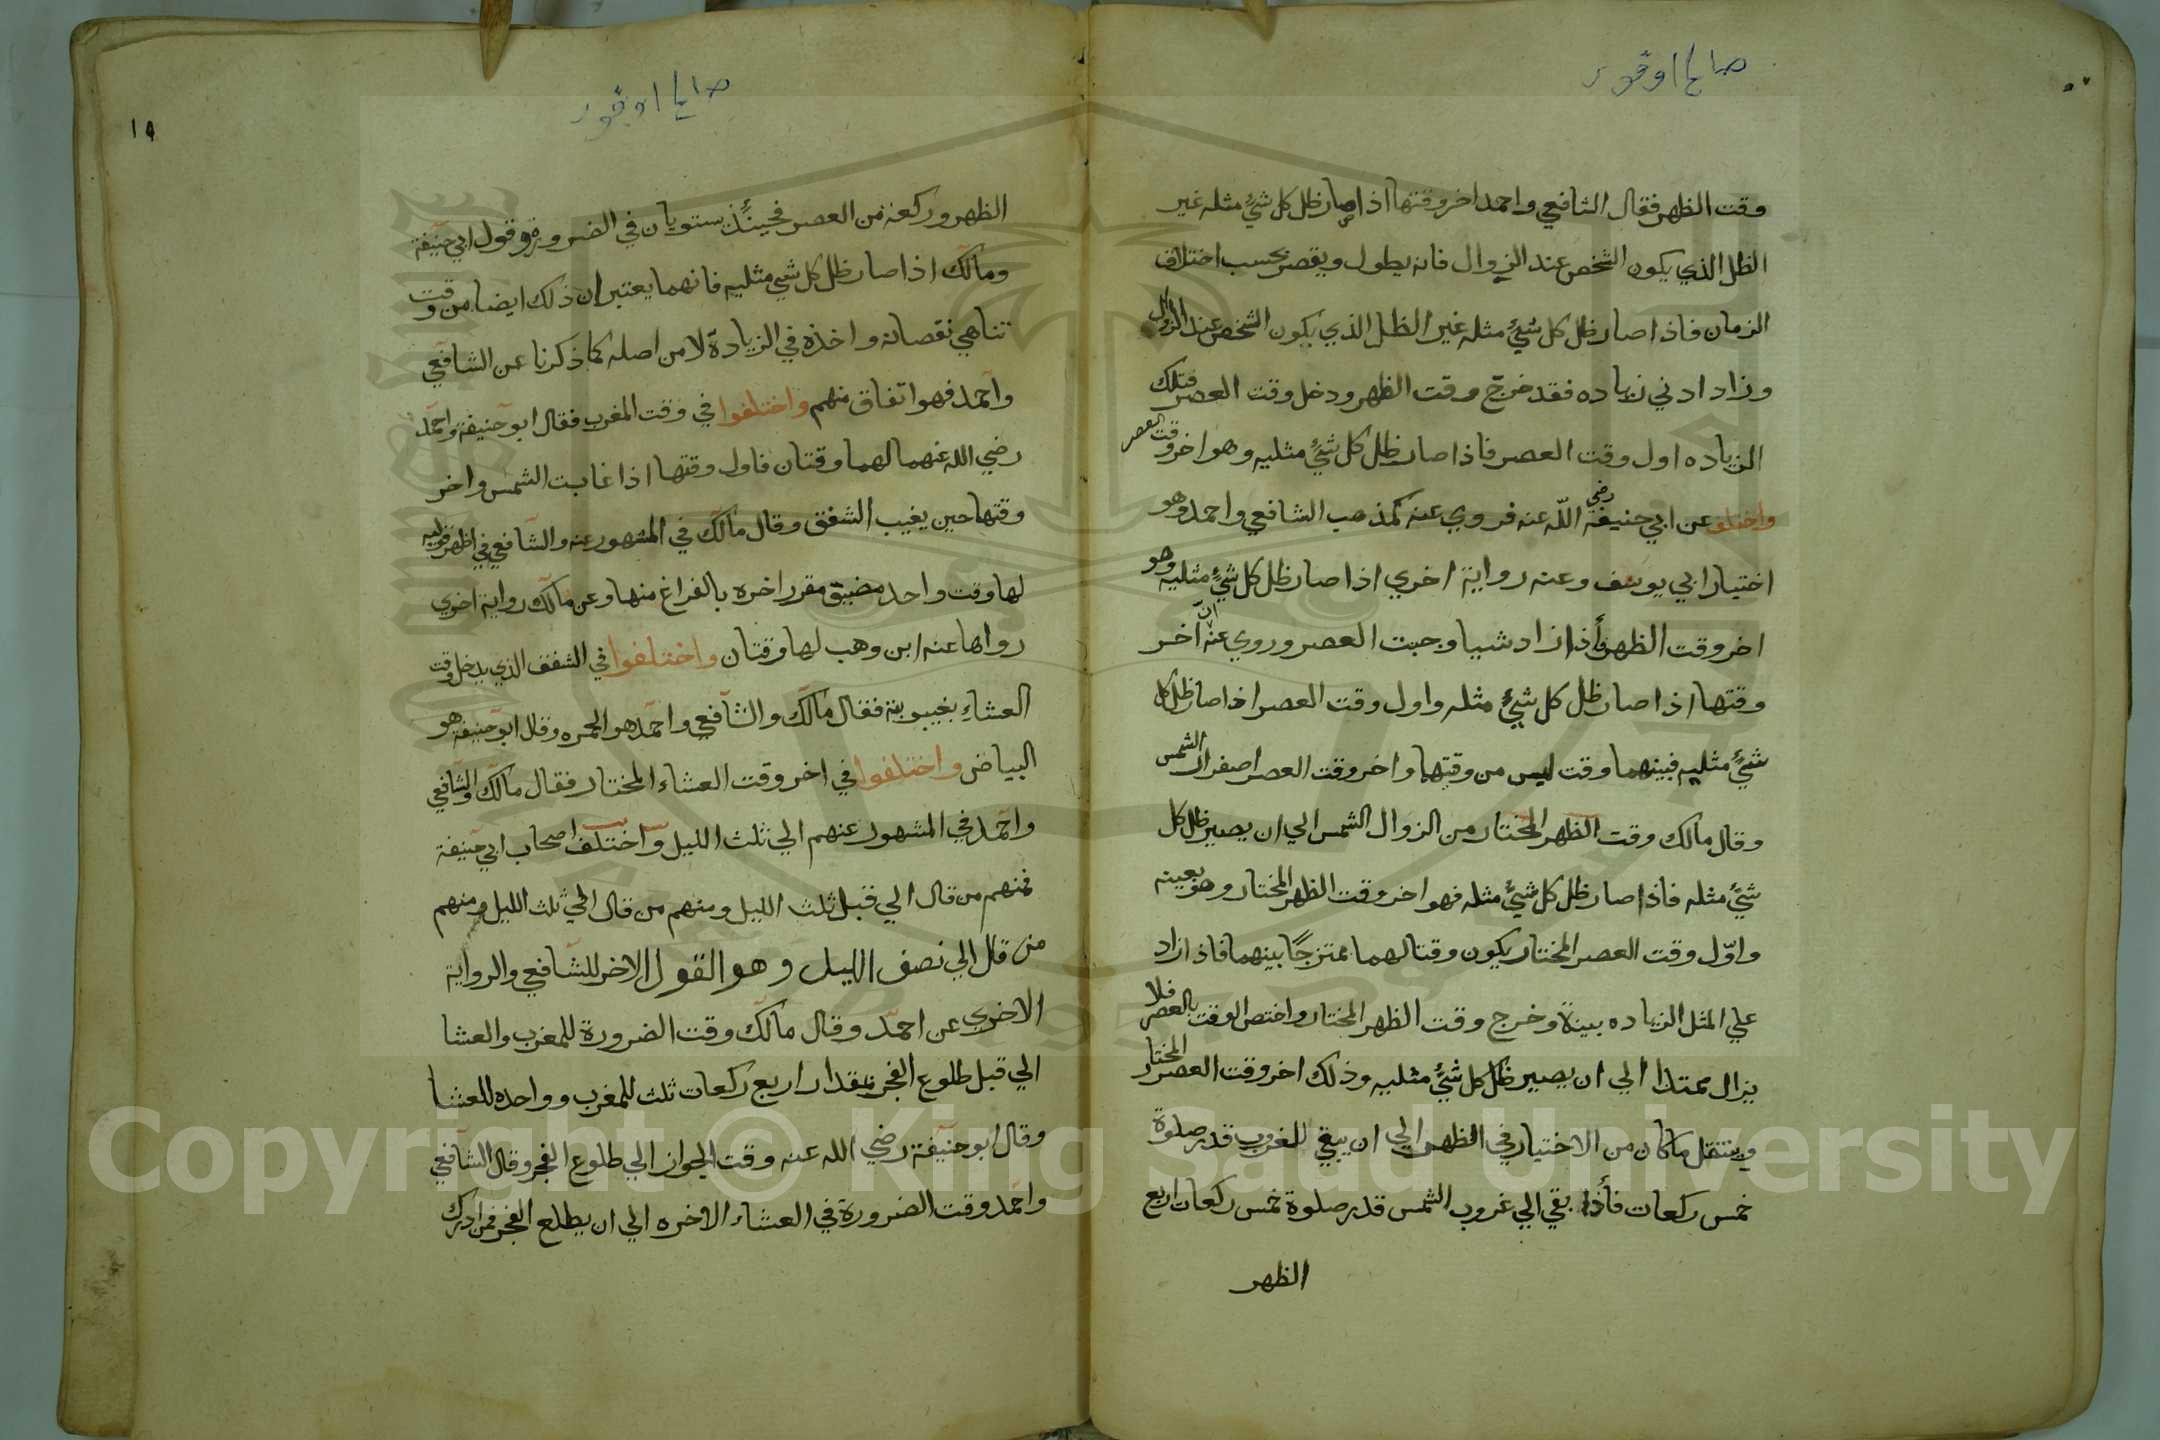 وقت الظهر فقال الشافعي واحمد اخر وقتها اذا صار ظل كل شيء مثله غير
الظل الذي يكون الشخص عند الزوال فانه يطول ويقصر بحسب اختلاف
الزمان فاذا صار ظل كل شيء مثله غير الظل الذي يكون الشخص عند الزوال
وزاد ادني زياده فقد خرج وقت الظهر ودخل وقت العصر فتلك
الزياده اول وقت العصر فاذا صار ظل كل شيء مثليه وهو اخر وقت العصر
واختلف عن ابي حنيفة رضي الله عنه فروي عنه كمذهب الشافعي واحمد وهو
اختيار ابي يوسف وعنه رواية اخري اذا صار ظل كل شيء مثليه وهو
اخر وقت الظهر وأذا زاد شيا وجبت العصر وروي عنه ان اخر
وقتها اذا صار ظل كل شيء مثله واول وقت العصر اذا صار ظل كل
شيء مثليه فبينهما وقت ليس من وقتهما واخر وقت العصر اصفرار الشمس
وقال مالك وقت الظهر المختار من الزوال الشمس الي ان يصير ظل كل
شيء مثله فاذا صار ظل كل شيء مثله فهو اخر وقت الظهر المختار وهو بعينه
واوّل وقت العصر المختار يكون وقتا لهما ممتزجًا بينهما فاذا زاد
علي المثل الزياده بينة وخرج وقت الظهر المختار واختص الوقت بالعصر فلا
يزال ممتدا الي ان يصير ظل كل شيء مثليه وذلك اخر وقت العصر المختار
وينتقل ماكان من الاختيار في الظهر الي ان يبقي للغروب قدر صلوة
خمس ركعات فأذا بقي الي غروب الشمس قدر صلوة خمس ركعات اربع
الظهر
١٩
الظهر وركعة من العصر فحينئذ يستويان في الضرورة وقول ابي حنيفة
ومالك اذا صار ظل كل شيء مثليه فانهما يعتبران ذلك ايضا من وقت
تناهي نقصانه واخذه في الزيادة لا من اصله كما ذكرنا عن الشافعي
واحمد فهو اتفاق منهم واختلفوا في وقت المغرب فقال ابو حنيفة واحمد
رضي الله عنهما لهما وقتان فاول وقتها اذا غابت الشمس واخر
وقتها حين يغيب الشفق وقال مالك في المشهور عنه والشافعي في اظهر قوليه
لها وقت واحد مضيق مقرر اخره بالفراغ منها وعن مالك رواية اخري
رواها عنه ابن وهب لها وقتان واختلفوا في الشفق الذي يدخل وقت
العشاء بغيبوبته فقال مالك والشافعي واحمد هو الحمره وقال ابو حنيفة هو
البياض واختلفوا في اخر وقت العشاء المختار فقال مالك والشافعي
واحمد في المشهور عنهم الي ثلث الليل واختلف اصحاب ابي حنيفة
فمنهم من قال الي قبل ثلث الليل ومنهم من قال الي ثلث الليل ومنهم
من قال الي نصف الليل وهو القول الاخر للشافعي والرواية
الاخري عن احمد وقال مالك وقت الضرورة للمغرب والعشا
الي قبل طلوع الفجر بمقدار اربع ركعات ثلث للمغرب وواحده للعشا
وقال ابو حنيفة رضي الله عنه وقت الجواز الي طلوع الفجر وقال الشافعي
واحمد وقت الضرورة في العشاء الاخره الي ان يطلع الفجر فمن ادرك
Copyright © King Saud University